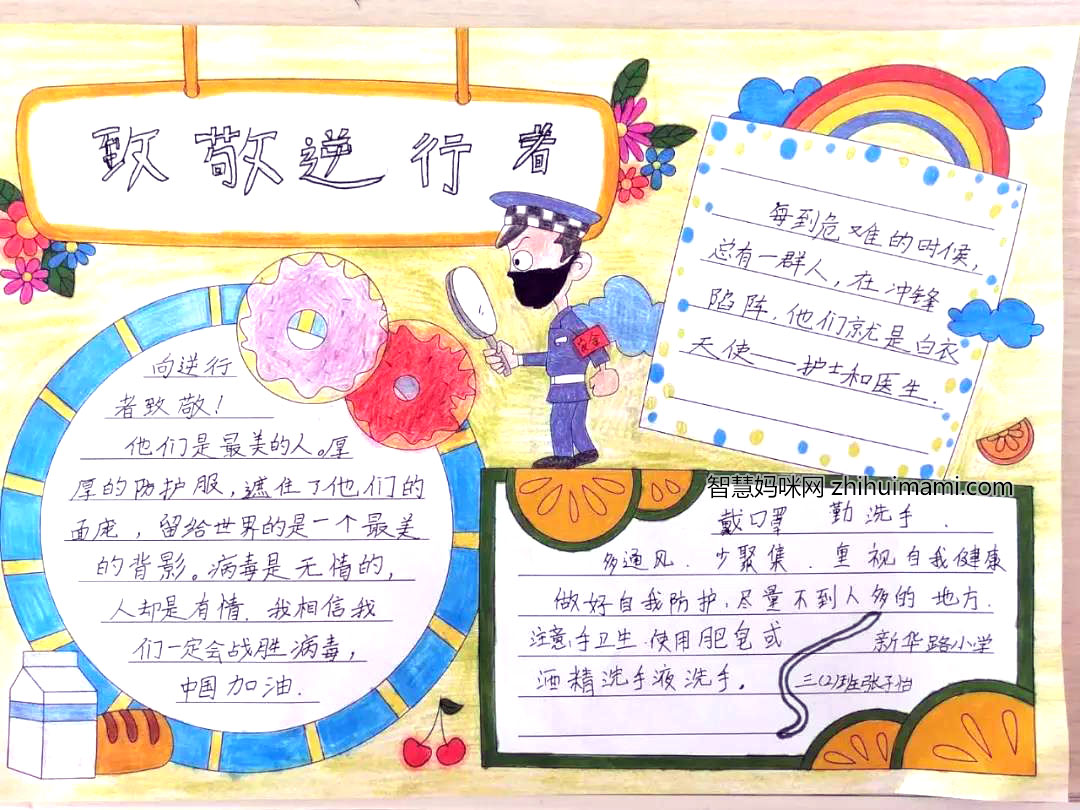 致敬逆行者
每到危难的时候,
总有一群人,在冲锋
陷阵,他们就是白衣
天使——护士和医生.
安全
向逆行
者致敬!
他们是最美的人。厚
厚的防护服,遮住了他们的
面庞,留给世界的是一个最美
的背影。病毒是无情的,
人却是有情.我相信我
们一定会战胜病毒,
中国加油.
智慧妈咪网 zhihuimami.com
戴口罩 勤洗手.
多通风.少聚集.重视自我健康
做好自我防护,尽量不到人多的地方.
注意手卫生.使用肥皂或
酒精洗手液洗手。
新华路小学
三(2)班张子怡